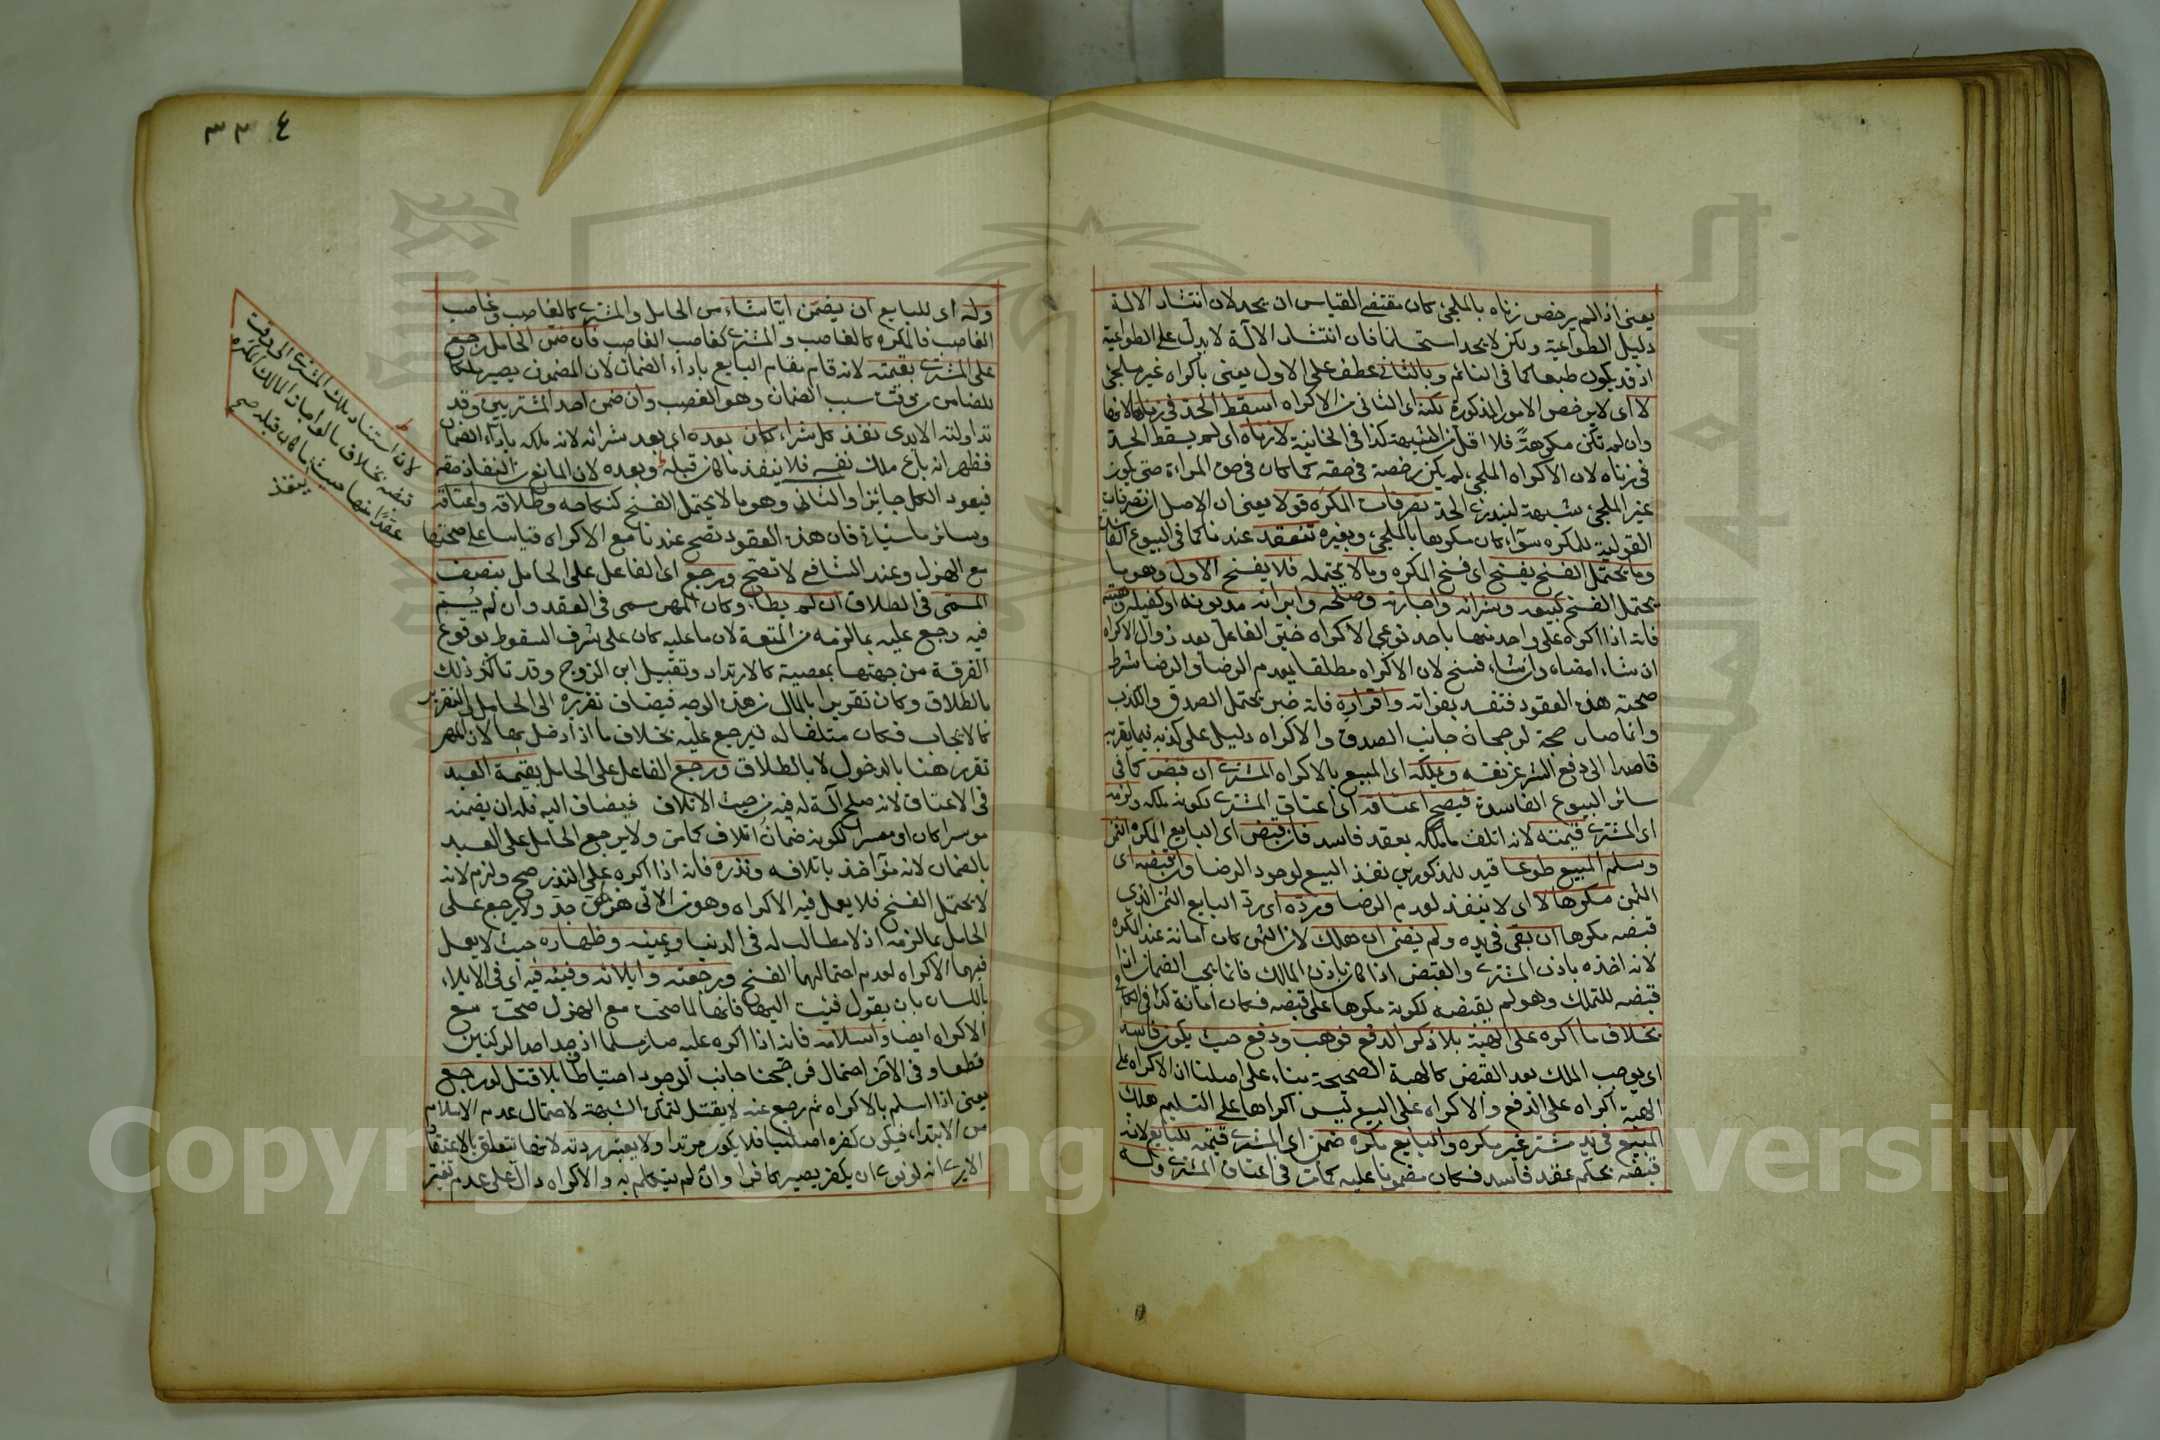 يعنى اذا لم يرخص زناه بالملجئ كان مقتضى القياس ان يحد لان انتشار الالة
دليل الطواعية ولكن لا يحد استحسانا فان انتشار الالة لا يدل على الطواعية
اذ قد يكون طبعا كما فى النائم وبالثانى عطف على الاول يعنى باكراه غير ملجئ
لا اى لا يرخص الامور المذكورة لكنه اى الثانى من الاكراه اسقط الحد فى زناها لانها
وان لم تكن مكرهة فلا اقل من الشبهة كذا فى الخانية لا زناه اى لم يسقط الحد
فى زناه لان الاكراه الملجئ لم يكن رخصة فى حقه كما كان فى حق المراة حتى يكون
غير الملجئ شبهة ليندرئ الحد تصرفات المكره قولا يعنى ان الاصل ان تصرفات
القولية للمكره سواء كان مكرها بالملجئ وبغيره تنعقد عندنا كما فى البيوع الفاسدة
وما يحتمل الفسخ يفسخ اى فسخ المكره وما لا يحتمله فلا يفسخ الاول وهو ما
يحتمل الفسخ كبيعه وشرائه واجارته وصلحه وابرائه مديونه او كفيله وهبته
فانه اذا اكره على واحد منها باحد نوعى الاكراه خير الفاعل بعد زوال الاكراه
ان شاء امضاه وان شاء فسخ لان الاكراه مطلقا يعدم الرضا والرضا شرط
صحة هذه العقود فتفسد بفواته واقراره فانه خبر يحتمل الصدق والكذب
وانما صار حجة لرجحان جانب الصدق والاكراه دليل على كذبه فيما يقر به
قاصدا الى دفع الشر عن نفسه ويملكه اى المبيع بالاكراه المشترى ان قبض كما فى
سائر البيوع الفاسدة فيصح اعتاقه اى اعتاق المشترى لكونه ملكه ولزمه
اى المشترى قيمته لانه اتلف ما ملكه بعقد فاسد فان قبض اى البايع المكره الثمن
وسلم المبيع طوعا قيد للمذكورين نفذ البيع لوجود الرضا وان قبضه اى
الثمن مكرها لا اى لا ينفذ لعدم الرضا ورده اى رد البايع الثمن الذى
قبضه مكرها ان بقى فى يده ولم يضمن ان هلك لان الثمن كان امانة عند المكره
لانه اخذه باذن المشترى والقبض اذا كان باذن المالك فانما يجب الضمان اذا
قبضه للتملك وهو لم يقبضه لكونه مكرها على قبضه فكان امانة كذا فى الكافى
بخلاف ما اكره على الهبة بلا ذكر الدفع فوهب ودفع حيث يكون فاسد
اى يوجب الملك بعد القبض كالهبة الصحيحة بناء على اصلنا ان الاكراه على
الهبة اكراه على الدفع والاكراه على البيع ليس اكراها على التسليم هلك
المبيع فى يد مشتر غير مكره والبايع مكره ضمن اى المشترى قيمته للبايع لانه
قبضه بحكم عقد فاسد فكان مضمونا عليه كما مر فى اعتاق المشترى وله
٣٣٤
وله اى للبايع ان يضمن ايا شاء من الحامل والمشترى كالغاصب وغاصب
الغاصب فالمكره كالغاصب والمشترى كغاصب الغاصب فان ضمن الحامل رجع
على المشترى بقيمته لانه قام مقام البايع باداء الضمان لان المضمون يصير ملكا
للضامن من وقت سبب الضمان وهو الغصب وان ضمن احد المشتريين وقد
تداولته الايدى نفذ كل شراء كان بعده اى بعد شرائه لانه ملكه باداء الضمان
فظهر انه باع ملك نفسه فلا ينفذ ما كان قبله وبعده لان المانع من النفاذ حقه
فيعود الكل جايزا والثانى وهو ما لا يحتمل الفسخ كنكاحه وطلاقه واعتاقه
وسائر ما سياتى فان هذه العقود تصح عندنا مع الاكراه قياسا على صحتها
مع الهزل وعند الشافعى لا تصح ورجع اى الفاعل على الحامل بنصف
المسمى فى الطلاق ان لم يطأ وكان المهر سمى فى العقد وان لم يسم
فيه رجع عليه بما لزمه من المتعة لان ما عليه كان على شرف السقوط بوقوع
الفرقة من جهتها بمعصية كالارتداد وتقبيل ابن الزوج وقد تاكد ذلك
بالطلاق وكان تقريرا بالمال من هذه الوجه فيضاف تقريره الى الحامل والتقرير
كالايجاب فكان متلفا له فيرجع عليه بخلاف ما اذا دخل بها لان المهر
تقرر هنا بالدخول لا بالطلاق ورجع الفاعل على الحامل بقيمة العبد
فى الاعتاق لانه صلح آلة له فيه من حيث الاتلاف فيضاف اليه فله ان يضمنه
موسرا كان او معسرا لكونه ضمان اتلاف كما مر ولا يرجع الحامل على العبد
بالضمان لانه مؤاخذ باتلافه ونذره فانه اذا اكره على النذر صح ولزم لانه
لا يحتمل الفسخ فلا يعمل فيه الاكراه وهو من الاتى هزلهن جد ولا يرجع على
الحامل بما لزمه اذ لا مطالب له فى الدنيا ويمينه وظهاره حيث لا يعمل
فيهما الاكراه لعدم احتمالهما الفسخ ورجعته وايلائه وفيئه فيه اى فى الايلاء
باللسان بان يقول فئت اليها فانها لما صحت مع الهزل صحت مع
الاكراه ايضا واسلامه فانه اذا اكره عليه صار مسلما اذ وجد احد الركنين
قطعا وفى الاخر احتمال فرجحنا جانب الوجود احتياطا بلا قتل لو رجع
يعنى اذا اسلم بالاكراه ثم رجع عنه لا يقتل لتمكن الشبهة لاحتمال عدم الاسلام
من الابتداء فيكون كفره اصليا فلا يكون مرتدا ولا يعتبر ردته لانها تتعلق بالاعتقاد
الا يرى انه لو نوى ان يكفر يصير كافرا وان لم يتكلم به والاكراه دال على عدم تغير
لان استناد ملك المشترى الى وقت
قبضه بخلاف ما لو اجاز المالك المكره
عقدا منها حيث ما كان قبله صح
ينفذ
Copyright © King Saud University